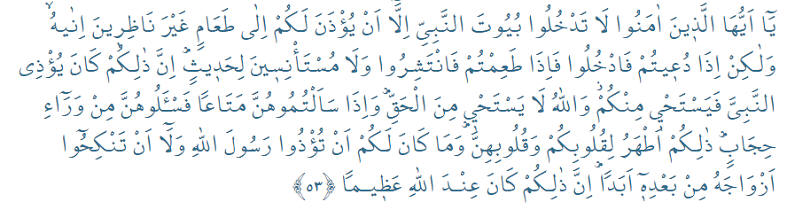 يَٓا اَيُّهَا الَّذ۪ينَ اٰمَنُوا لَا تَدْخُلُوا بُيُوتَ النَّبِيِّ اِلَّٓا اَنْ يُؤْذَنَ لَكُمْ اِلٰى طَعَامٍ غَيْرَ نَاظِر۪ينَ اِنٰيهُۙ
وَلٰكِنْ اِذَا دُع۪يتُمْ فَادْخُلُوا فَاِذَا طَعِمْتُمْ فَانْتَشِرُوا وَلَا مُسْتَأْنِس۪ينَ لِحَد۪يثٍۜ اِنَّ ذٰلِكُمْ كَانَ يُؤْذِي
النَّبِيَّ فَيَسْتَحْي۪ مِنْكُمْۘ وَاللّٰهُ لَا يَسْتَحْي۪ مِنَ الْحَقِّۜ وَاِذَا سَاَلْتُمُوهُنَّ مَتَاعًا فَسْـَٔلُوهُنَّ مِنْ وَرَٓاءِ
حِجَابٍۜ ذٰلِكُمْ اَطْهَرُ لِقُلُوبِكُمْ وَقُلُوبِهِنَّۜ وَمَا كَانَ لَكُمْ اَنْ تُؤْذُوا رَسُولَ اللّٰهِ وَلَٓا اَنْ تَنْكِحُٓوا
اَزْوَاجَهُ مِنْ بَعْدِه۪ٓ اَبَدًاۜ اِنَّ ذٰلِكُمْ كَانَ عِنْدَ اللّٰهِ عَظ۪يمًا ﴿٥٣﴾